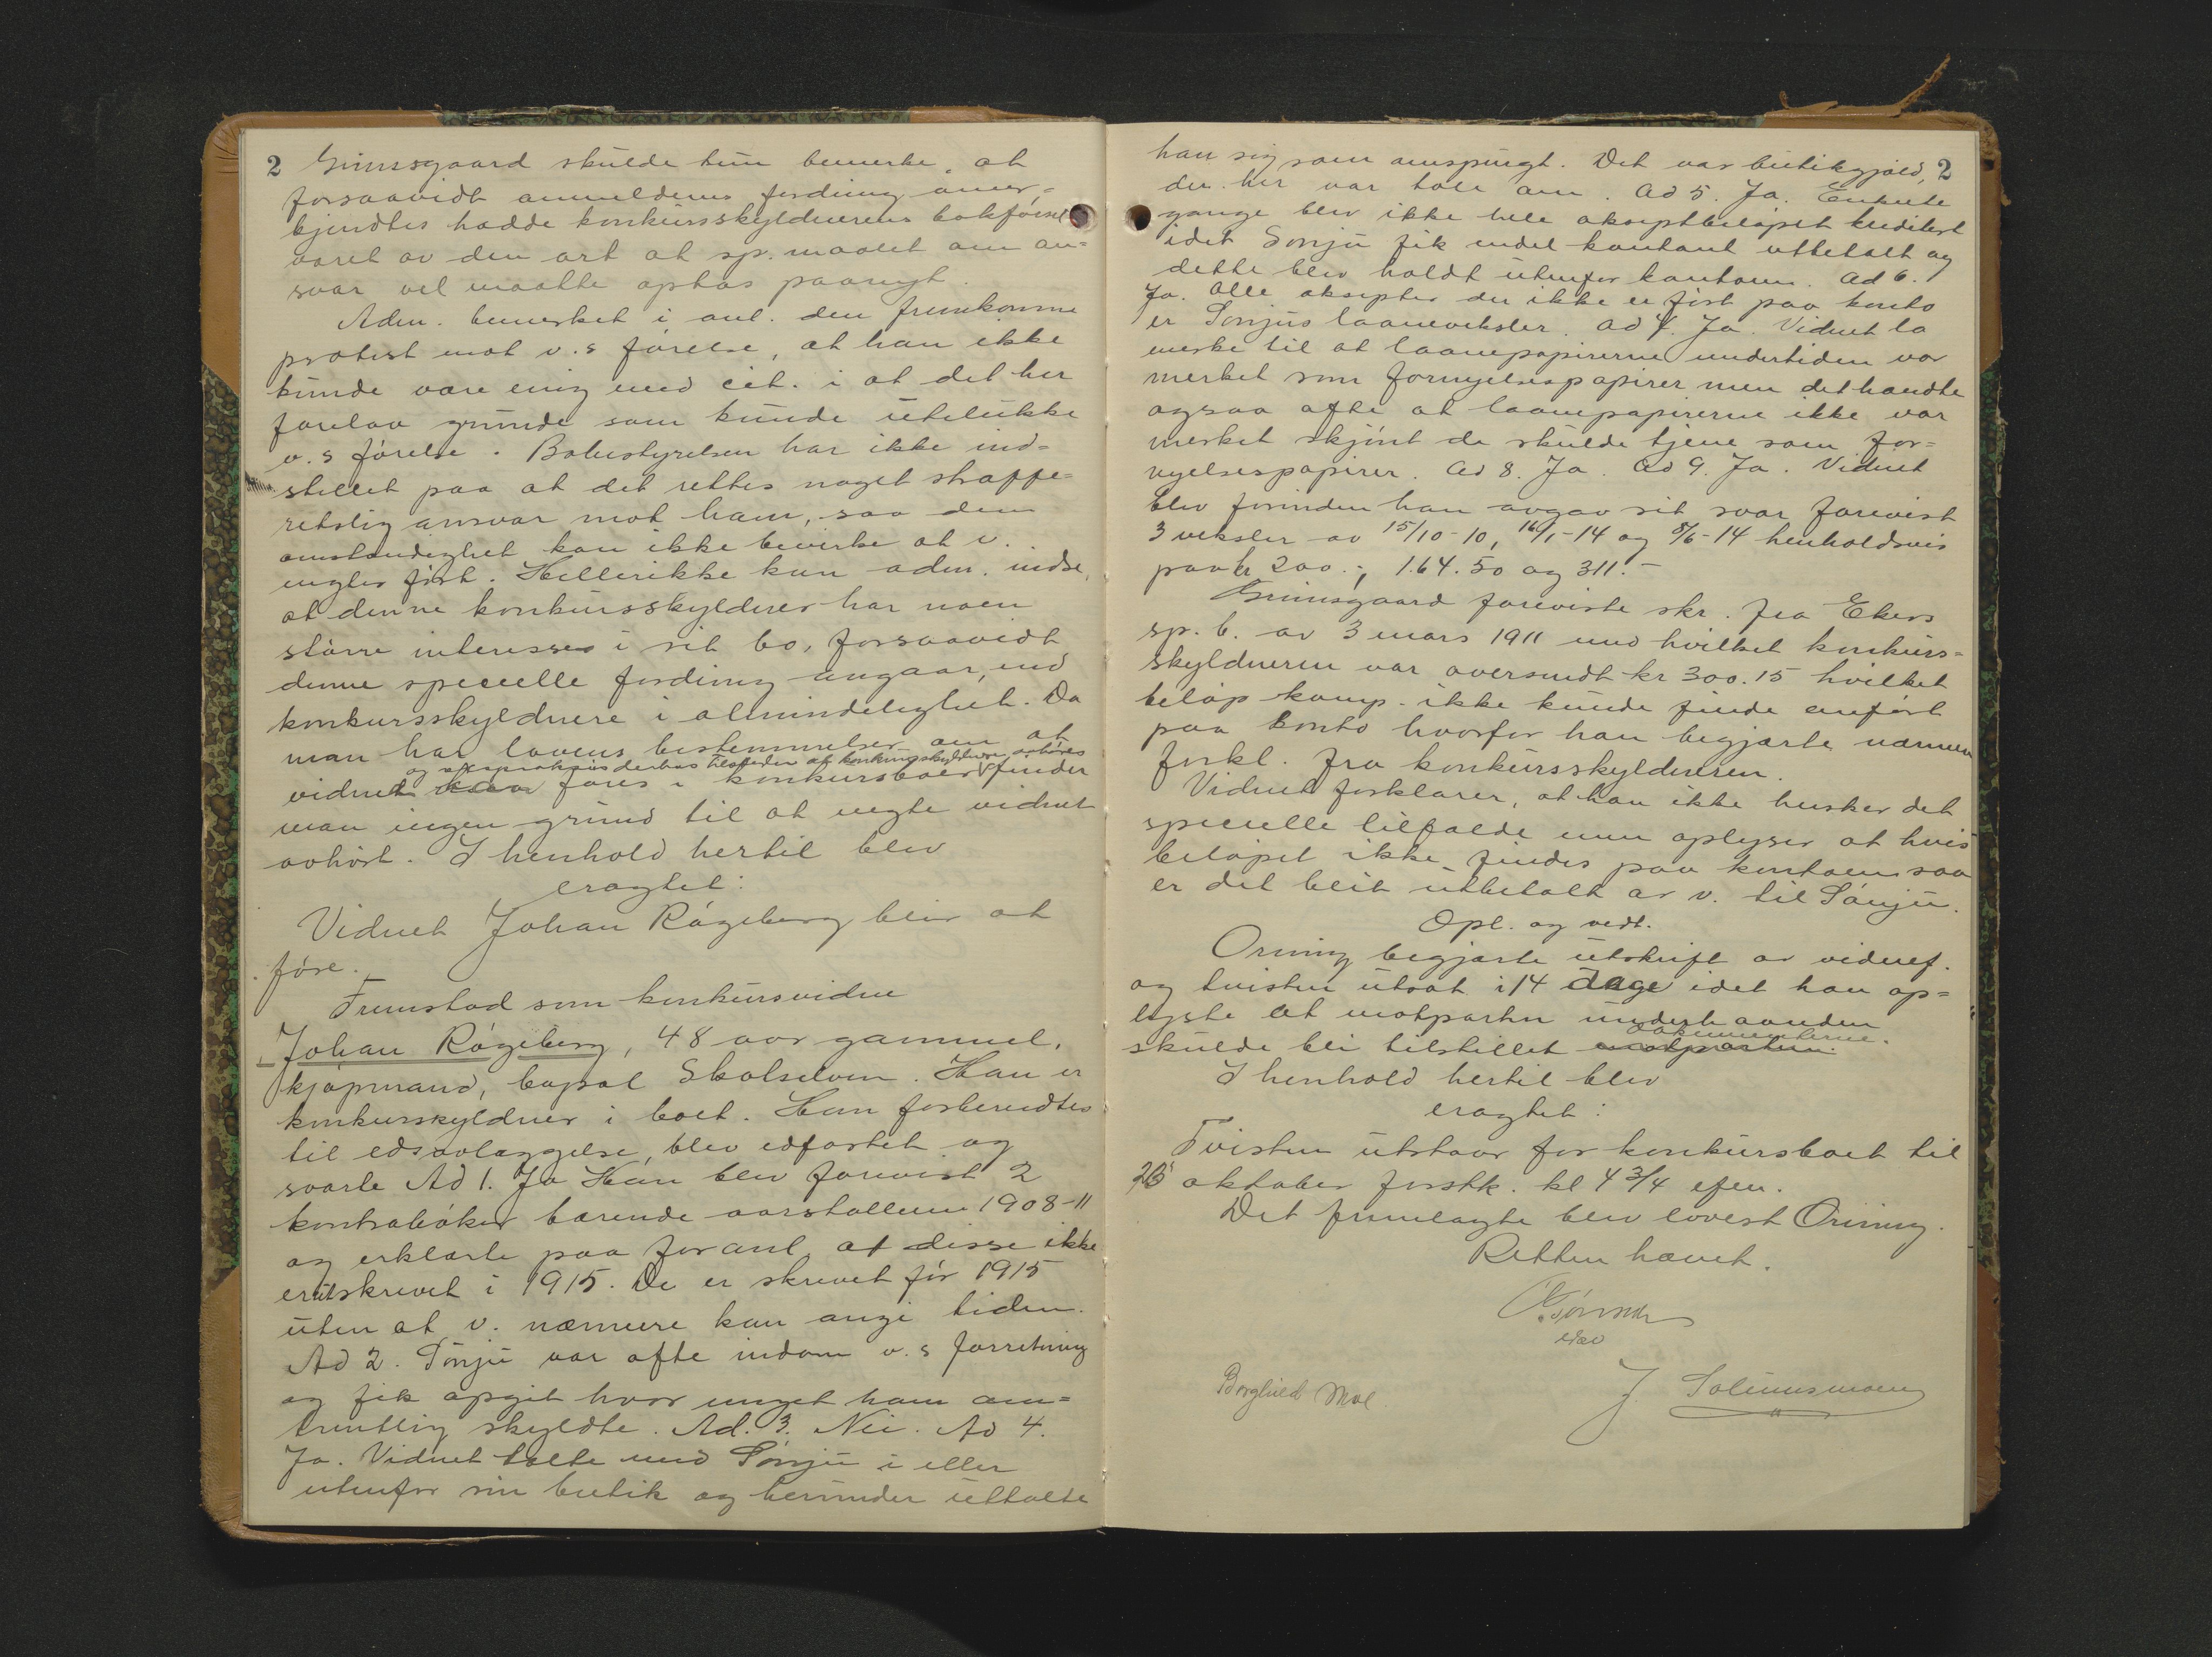 2 Grimsgaard skulde kun bemerke, at
forsaavidt anmelderens fordring aner-
kjendtes hadde konkursskyldnerens bokførsel
været av den art at sp.maalet om an-
svar vel maatte optas paanyt.
Adm. bemerket i anl. den fremkomne
protest mot v.s førelse, at han ikke
kunde være enig med cit. i at det her
forelaa grunde som kunde utelukke
v.s førelse. Bobestyrelsen har ikke ind-
stillet paa at det rettes noget straffe-
retslig ansvar mot ham, saa den
omstændighet kan ikke bevirke at v.
negtes ført. Hellerikke kan adm. indse,
at denne konkursskyldner har noen
større interesse i sit bo, forsaavidt
denne specielle fordring angaar, end
konkursskyldnere i almindelighet. Da
man har lovens bestemmelser om at
og derhos tilsteder at konkursskyldnere avhøres
vidner føres i konkursboer finder
man ingen grund til at negte vidnet
avhørt. I henhold hertil blev
eragtet:
Vidnet Johan Røgeberg blir at
føre.
Fremstod som konkursvidne
Johan Røgeberg, 48 aar gammel,
kjøpmand, bopæl Skotselven. Han er
konkursskyldner i boet. Han forberedtes
til edsavlæggelse, blev edfæstet og
svarte Ad 1. Ja Han blev forevist 2
kontrabøker bærende aarstallene 1908-11
og erklærte paa foranl. at disse ikke
er utskrevet i 1915. De er skrevet før 1915
uten at v. nærmere kan angi tiden.
Ad 2. Sønju var ofte indom v.s forretning
og fik opgit hvor meget han om-
trentlig skyldte. Ad. 3. Nei. Ad 4.
Ja. Vidnet talte med Sønju i eller
utenfor sin butik og herunder uttalte
han sig som omspurgt. Det var butikgjæld, 2
der her var tale om. Ad 5. Ja. Enkelte
gange blev ikke hele akseptbeløpet kreditert
idet Sønju fik endel kontant utbetalt og
dette blev holdt utenfor kontoen. Ad 6.
Ja. Alle aksepter der ikke er ført paa konto
er Sønjus laaneveksler. Ad 7. Ja. Vidnet la
merke til at laanepapirerne undertiden var
merket som fornyelsespapirer men det hændte
ogsaa ofte at laanepapirerne ikke var
merket skjønt de skulde tjene som for-
nyelsespapirer. Ad 8. Ja. Ad 9. Ja. Vidnet
blev forinden han avgav sit svar forevist
3 veksler av 15/10-10, 16/1-14 og 8/6-14 henholdsvis
paa kr 200.-, 164.50 og 311.-
Grimsgaard foreviste skr. fra Ekers
sp.b. av 3 mars 1911 med hvilket konkurs-
skyldneren var oversendt kr 300.15 hvilket
beløp komp. ikke kunde finde anført
paa konto hvorfor han begjærte nærmere
forkl. fra konkursskyldneren.
Vidnet forklarer, at han ikke husker det
specielle tilfælde men oplyser at hvis
beløpet ikke findes paa kontoen saa
er det blit utbetalt av v. til Sønju.
Opl. og vedt.
Orning begjærte utskrift av vidnef.
og tvisten utsat i 14 dage idet han op-
lyste at motparten underhaanden
dokumenterne.
skulde bli tilstillet motparten.
I henhold hertil blev
eragtet:
Tvisten utstaar for konkursboet til
26 oktober førstk. kl 4 3/4 efm.
Det fremlagte blev lovest Orning.
Retten hævet.
Borghild Moe
J. Solumsmoen